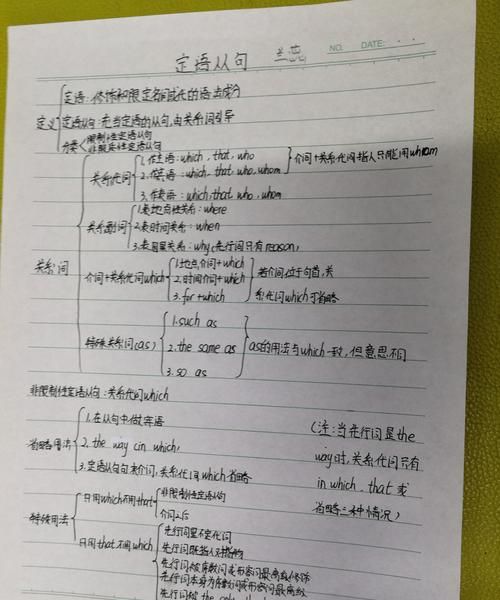 定语从句 兰蕊
NO. DATE:
定义 定语:修饰和限定名词或代的语法成分
定语从句:充当定语的从句,由关系词引导
分类 限制性定语从句
非限制性定语从句
关系词 关系代词 1.作主语:which, that, who
2.作宾语:which, that, who, whom
3.作表语:which, that, who, whom
介词+关系代词指人只能用whom
关系副词 1.表地点性关系:where
2.表时间关系:when
3.表因果关系:why(先行词只有reason)
介词+关系代词which 1.地点介词+which
2.时间介词+which
3.for+which
若介词位于句首,关
系代词which可省略
特殊关系词(as) 1.such as
2.the same as
3.so as
as的用法与which一致,但意思不同
非限制性定语从句:关系代词which
省略用法 1.在从句中做宾语
2.the way (in which)
3.定语从句句末介词,关系代词which省略
(注:当先行词是the
way时,关系代词只有
in which, that 或
省略三种情况)
特殊用法 只用which不用that 非限制性定语从句
介词之后
只用that不用which 先行词是不定代词
先行词既指人又指物
先行词被序数词或形容词最高级修饰
先行词本身为序数词或形容词最高级
先行词被the only, th